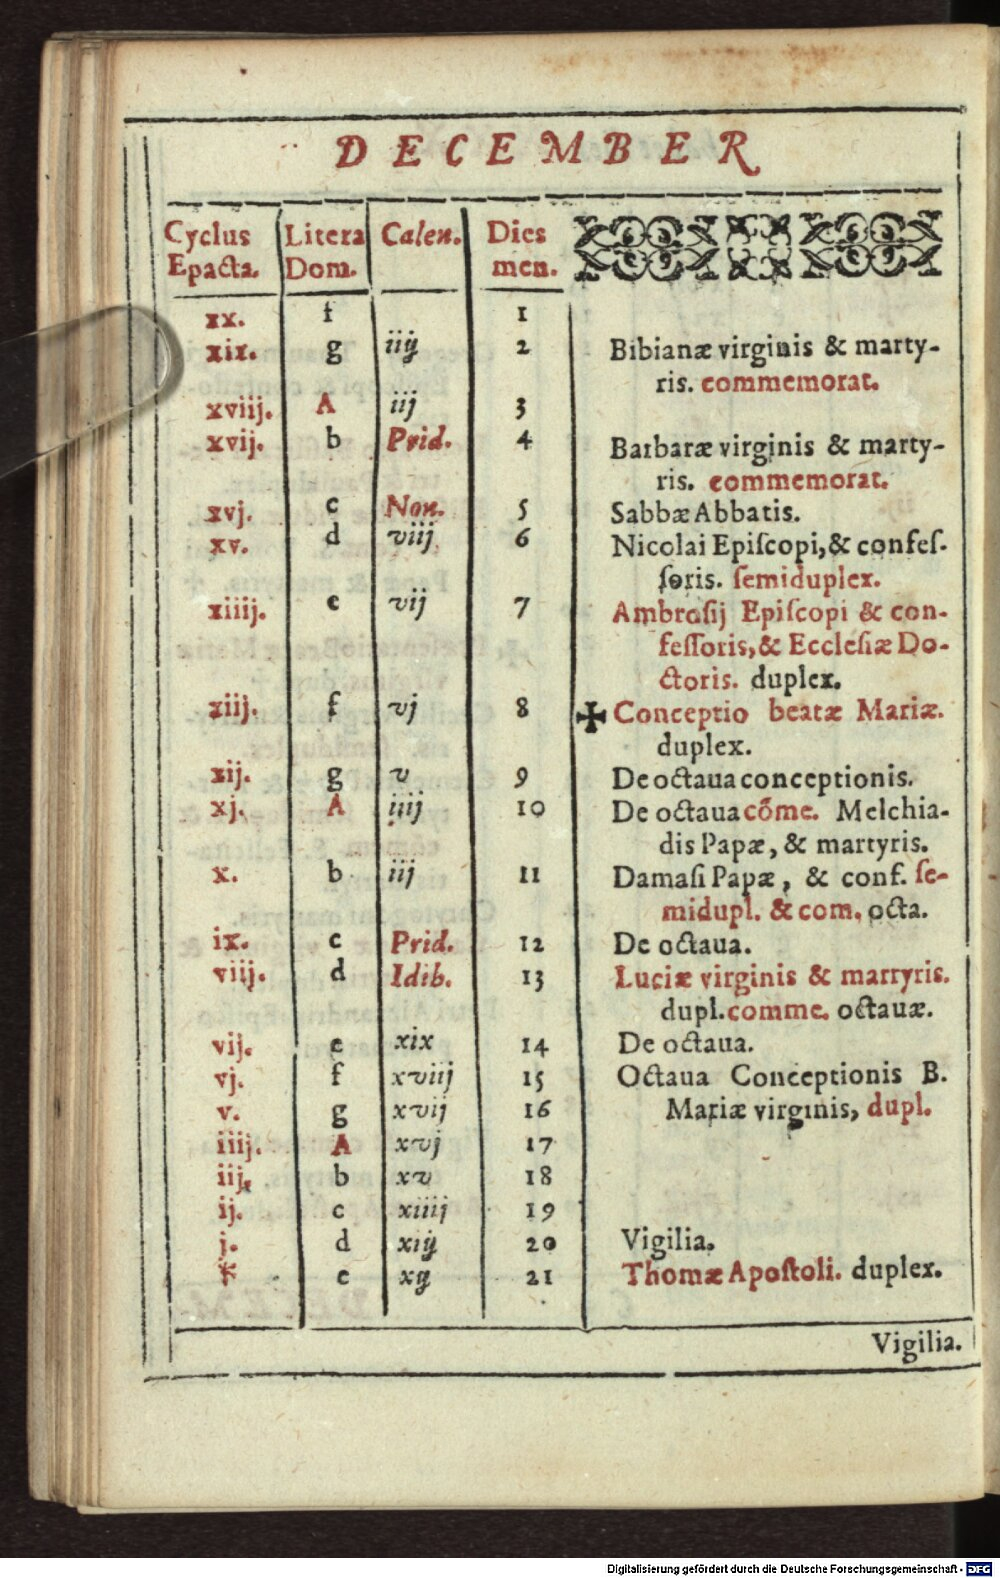 DECEMBER
Cyclus Epacta. Litera Dom. Calen. Dies men.
xx. f 1
xix. g iiij 2 Bibianæ virginis & marty-
ris. commemorat.
xviij. A iij 3
xvij. b Prid. 4 Barbaræ virginis & marty-
ris. commemorat.
xvj. c Non. 5 Sabbæ Abbatis.
xv. d viij 6 Nicolai Epiſcopi, & confeſ-
ſoris. ſemiduplex.
xiiij. e vij 7 Ambroſij Epiſcopi & con-
feſſoris, & Eccleſiæ Do-
ctoris. duplex.
xiij. f vj 8 ✠ Conceptio beatæ Mariæ.
duplex.
xij. g v 9 De octaua conceptionis.
xj. A iiij 10 De octaua cõme. Melchia-
dis Papæ, & martyris.
x. b iij 11 Damaſi Papæ, & conf. ſe-
midupl. & com. octa.
ix. c Prid. 12 De octaua.
viij. d Idib. 13 Luciæ virginis & martyris.
dupl. comme. octauæ.
vij. e xix 14 De octaua.
vj. f xviij 15 Octaua Conceptionis B.
v. g xvij 16 Mariæ virginis, dupl.
iiij. A xvj 17
iij. b xv 18
ij. c xiiij 19
j. d xiij 20 Vigilia.
* e xij 21 Thomæ Apoſtoli. duplex.
Vigilia.
Digitalisierung gefördert durch die Deutsche Forschungsgemeinschaft - DFG